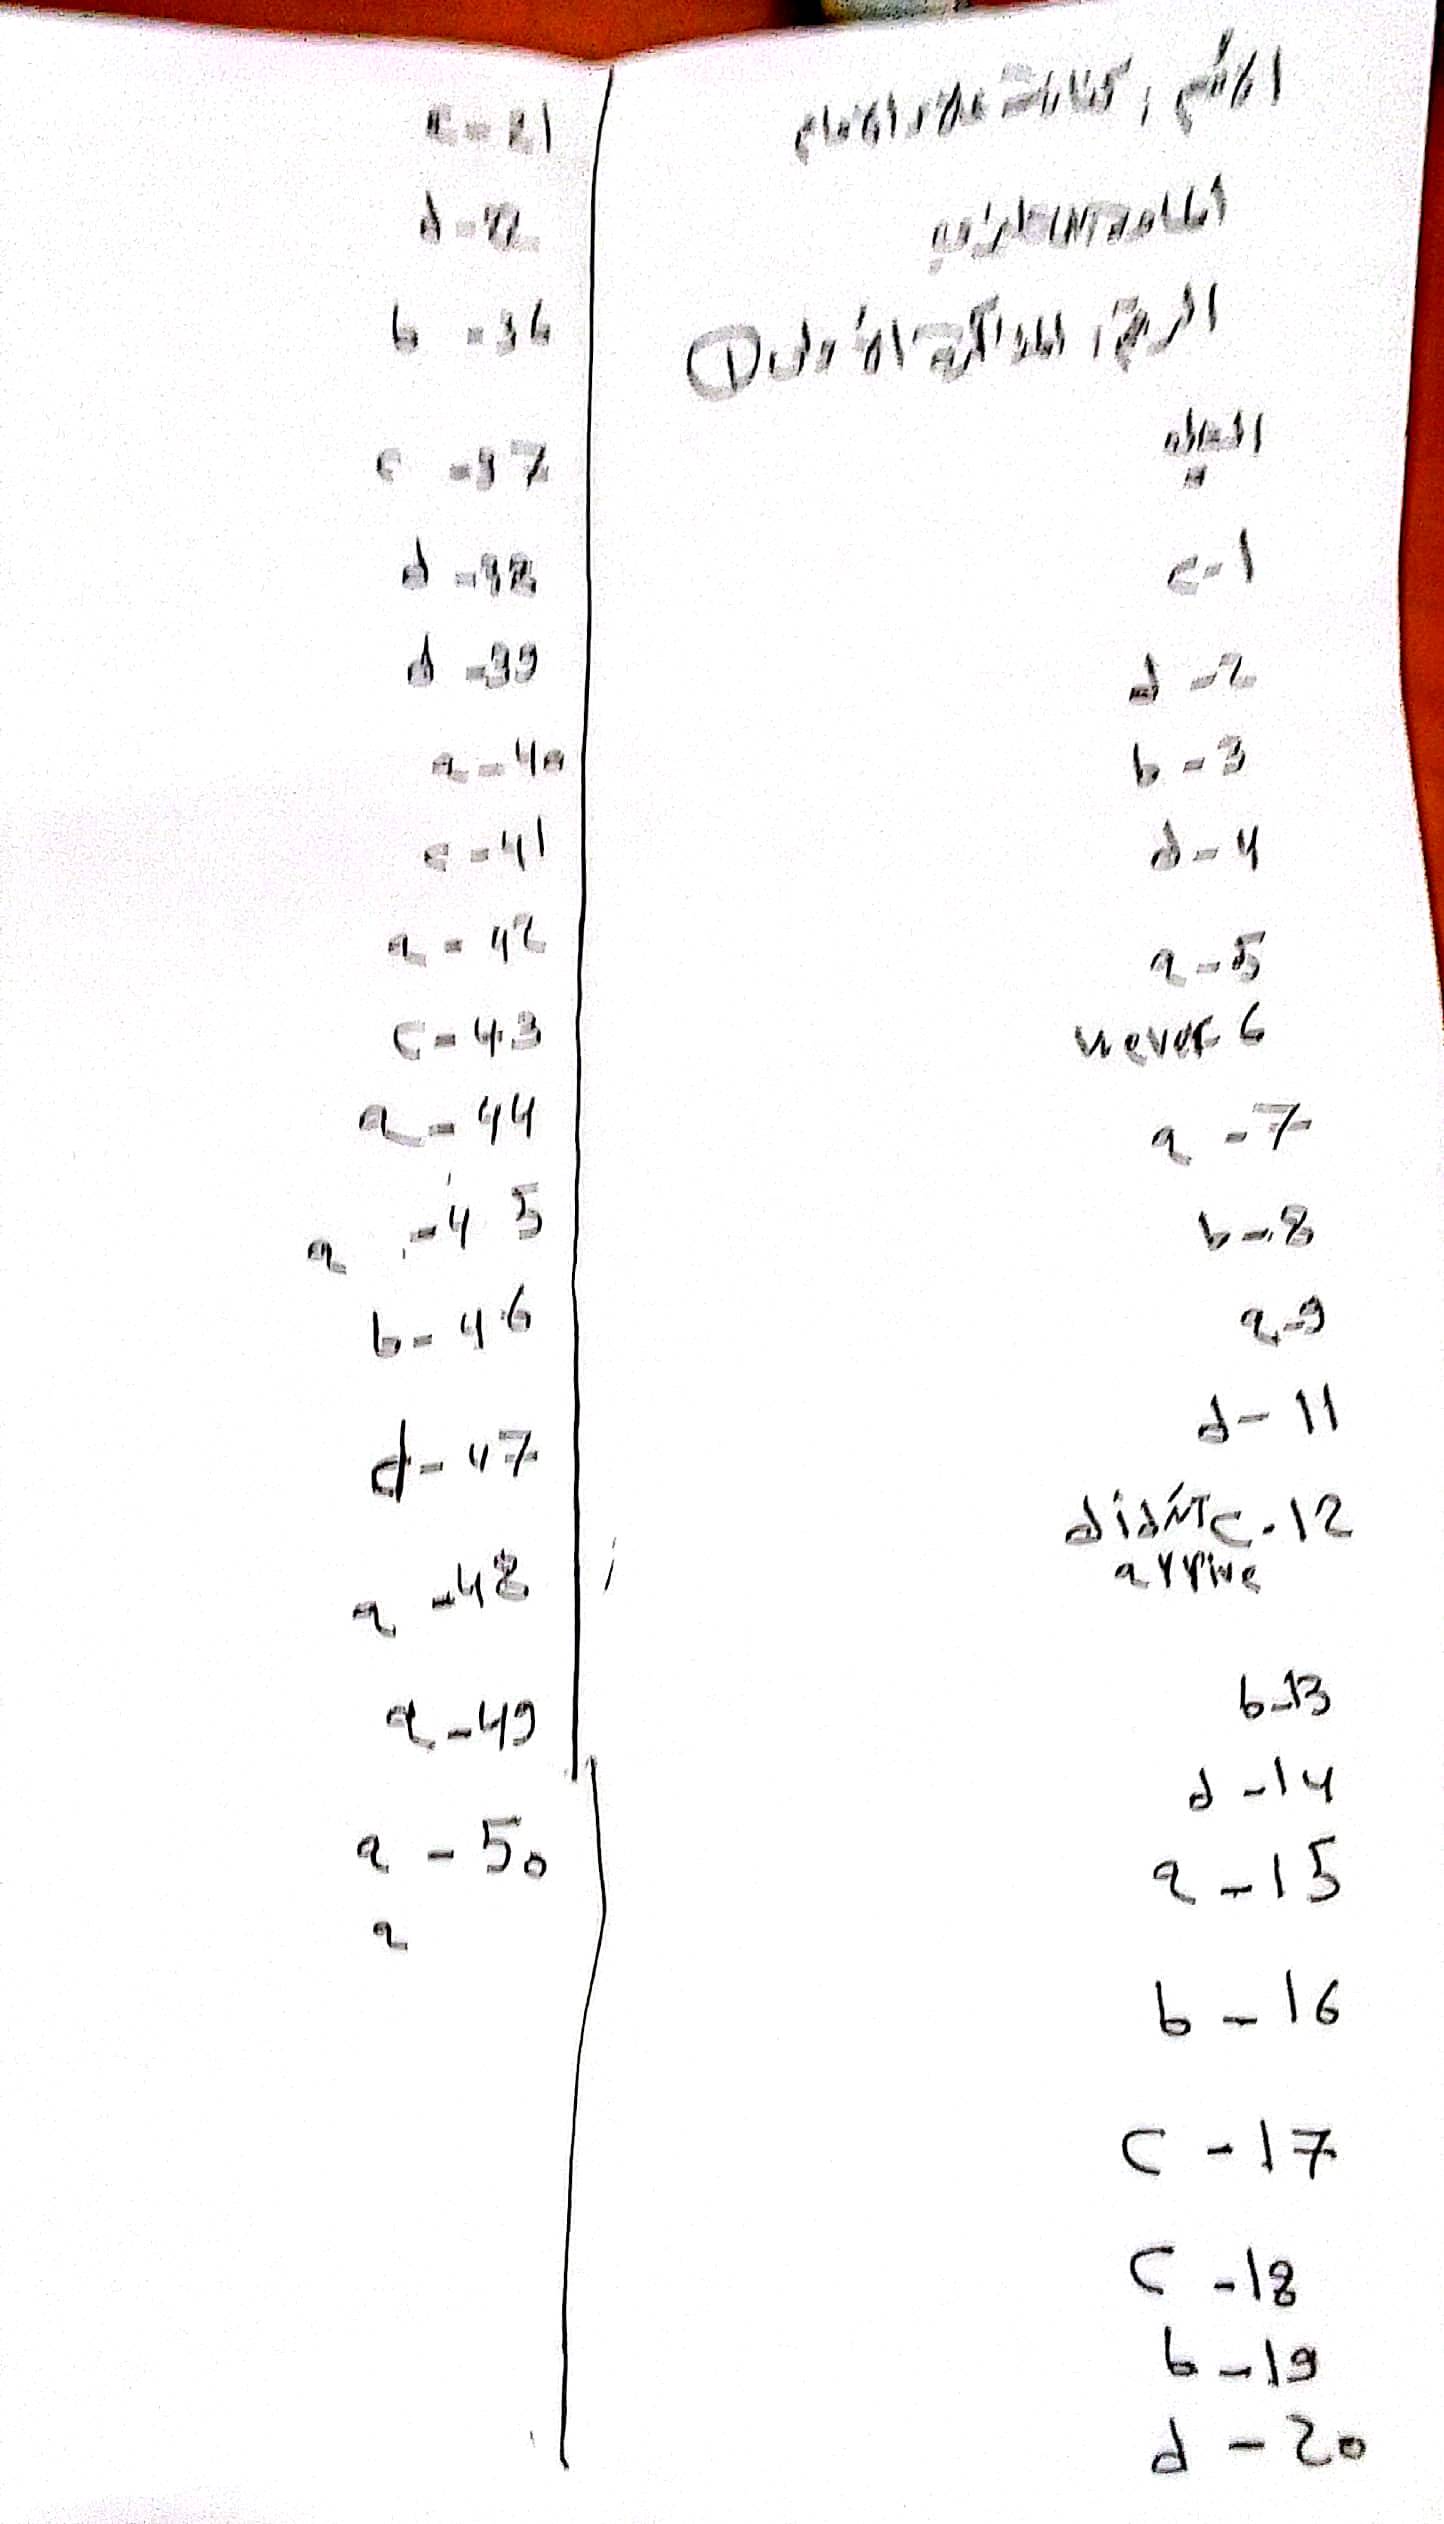 c-1
d-2
b-3
d-4
a-5
never 6
a-7
b-8
a-9
d-11
didn't c-12
arrive
b-13
d-14
a-15
b-16
c-17
c-18
b-19
d-20
a-21
d-22
b-36
c-37
d-38
d-39
a-40
c-41
a-42
c-43
a-44
a-45
b-46
d-47
a-48
a-49
a-50
a